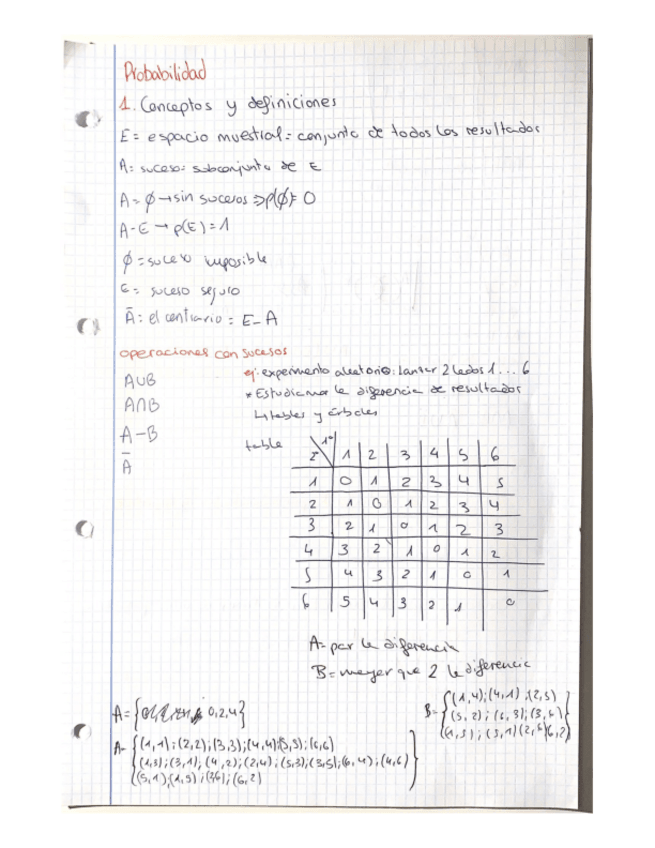 Probabilidad
1. Conceptos y definiciones
E = espacio muestral = conjunto de todos los resultados
A = suceso = subconjunto de E
A = ∅ → sin sucesos ⇒ p(∅) = 0
A = E → p(E) = 1
∅ = suceso imposible
E = suceso seguro
Ā = el contrario = E - A
operaciones con sucesos
A∪B
A∩B
A - B
Ā
ej: experimento aleatorio: lanzar 2 dados 1 ... 6
* Estudiamos la diferencia de resultados
↳ tablas y árboles
tabla
2º 1º 1 2 3 4 5 6
1 0 1 2 3 4 5
2 1 0 1 2 3 4
3 2 1 0 1 2 3
4 3 2 1 0 1 2
5 4 3 2 1 0 1
6 5 4 3 2 1 0
A = par la diferencia
B = mayor que 2 la diferencia
A = { 0,2,4}
A = {(1,1);(2,2);(3,3);(4,4);(5,5);(6,6)
(1,3);(3,1);(4,2);(2,4);(5,3);(3,5);(6,4);(4,6)
(5,1);(1,5);(2,6);(6,2)}
B = {(1,4);(4,1);(2,5)
(5,2);(6,3);(3,6)
(1,5);(5,1)(2,6)(6,2)}